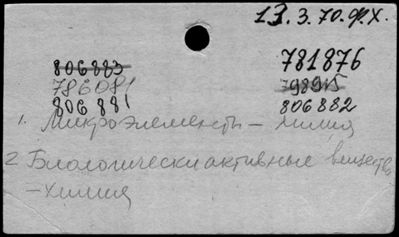 13.3.70.Ф.Х.
806883 781876
786081 798915
806881 806882
1. Микроэлементы – химия
2 Биологически активные веществ
– химия